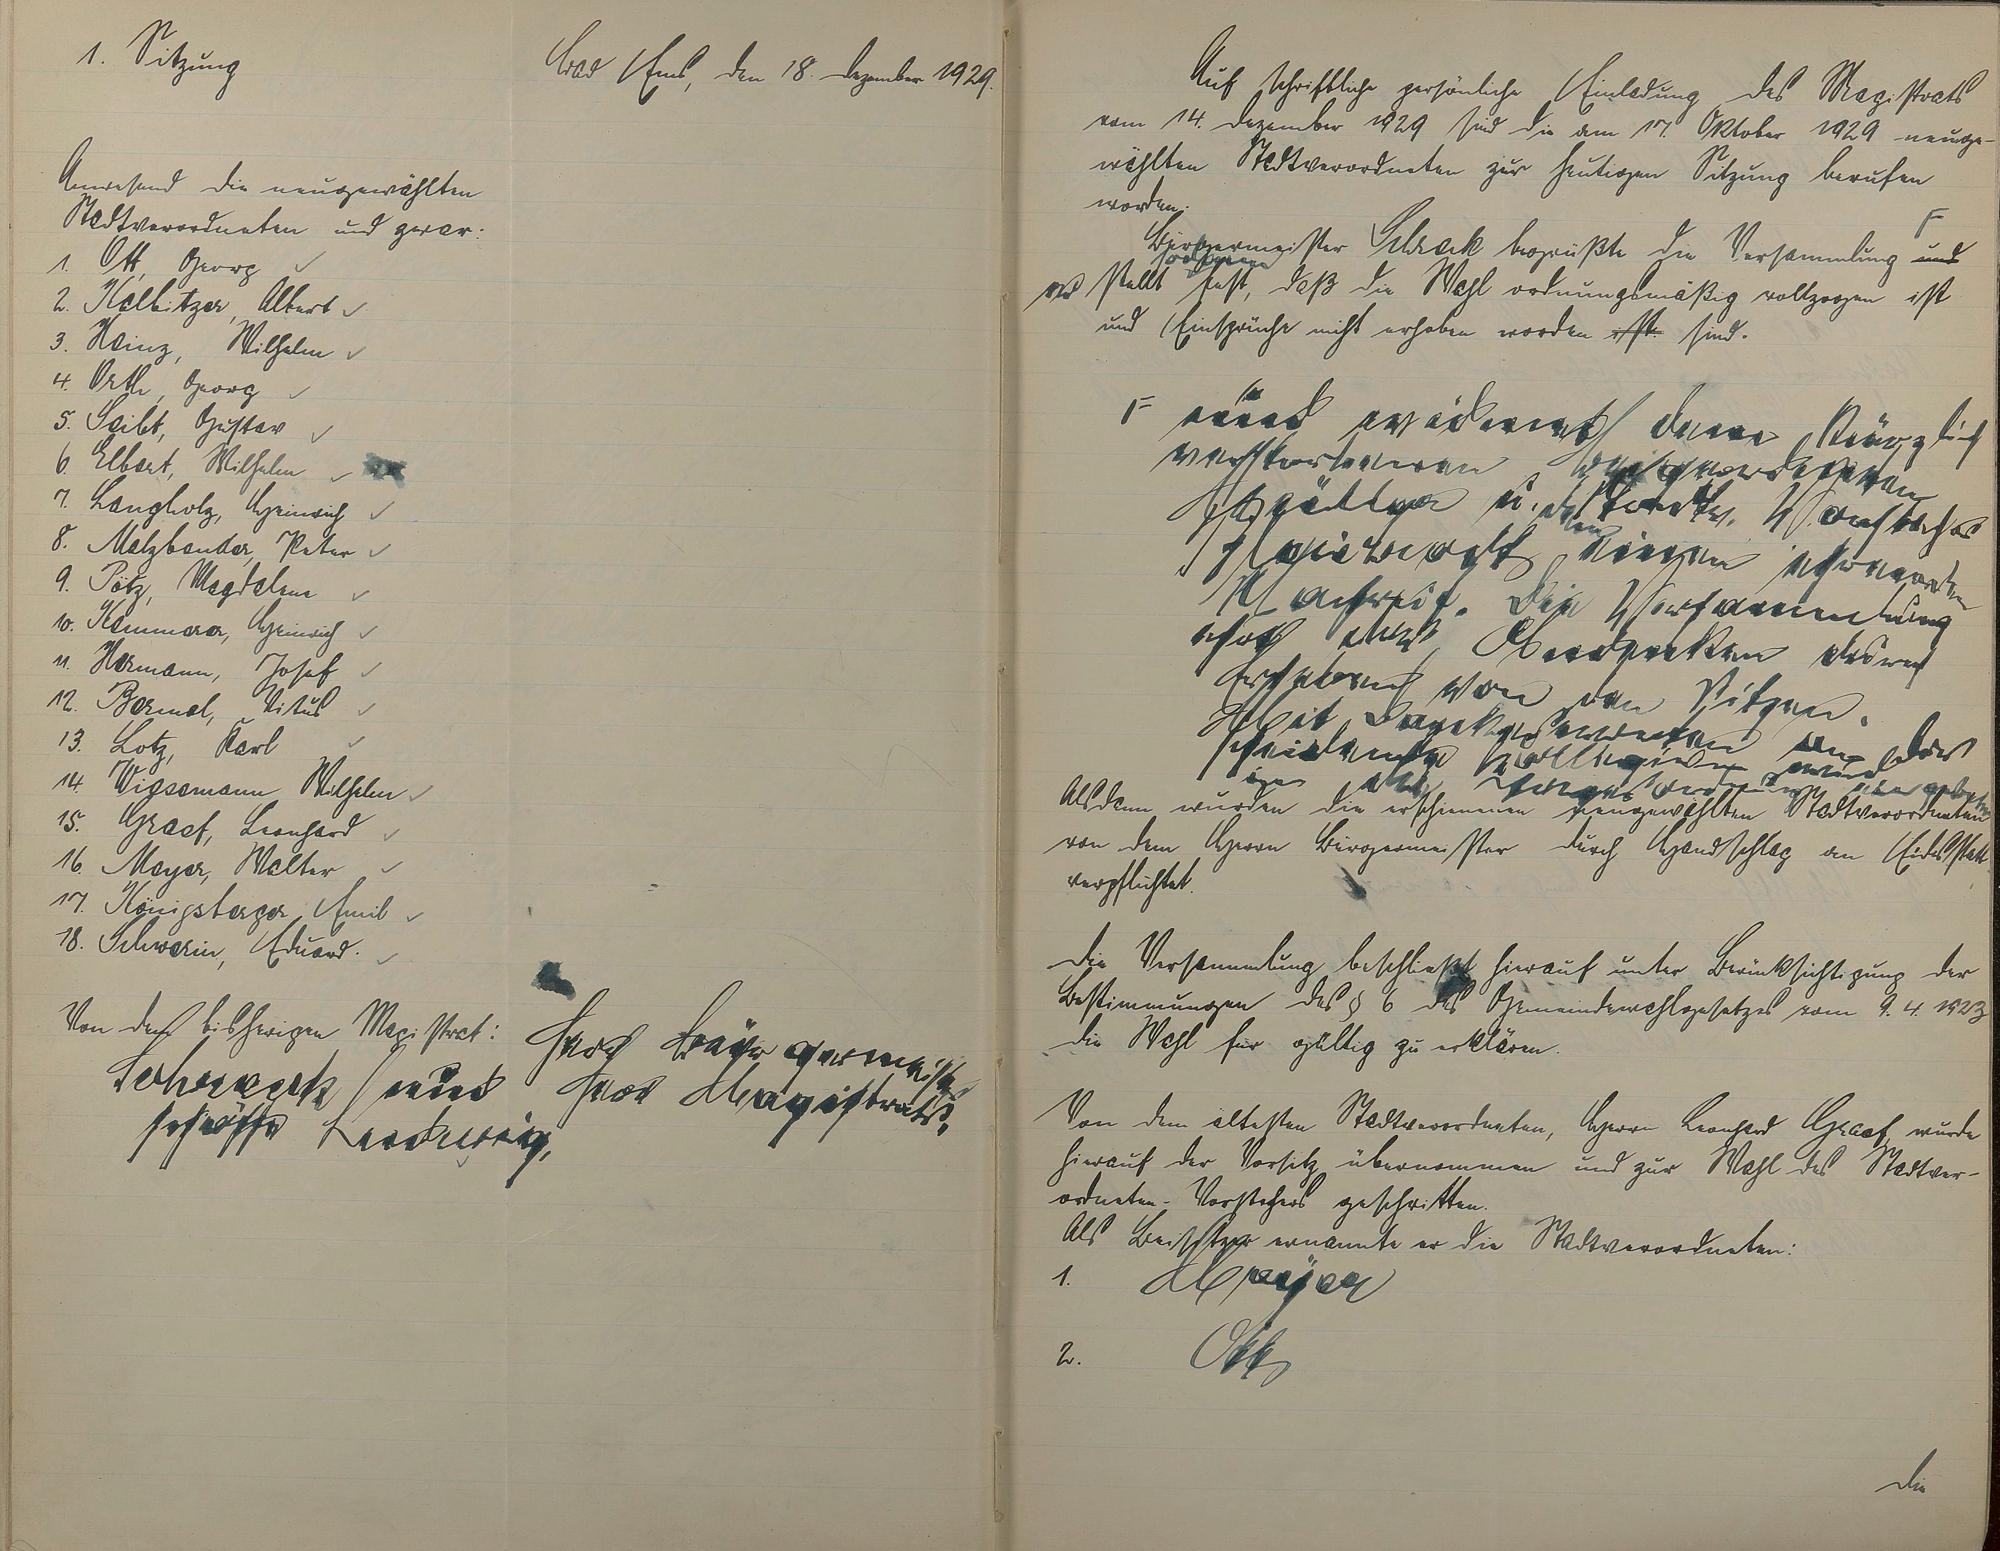 1. Sitzung
Bad Ems, den 18. Dezember 1929.
Anwesend die neugewählten
Stadtverordneten und zwar:
1. Ott, Georg
2. Kalbitzer, Albert
3. Heinz, Wilhelm
4. Orth, Georg
5. Seibt, Gustav
6. Elbert, Wilhelm
7. Langholz, Heinrich
8. Malzbender, Peter
9. Pötz, Magdalene
10. Kammerer, Heinrich
11. Hermann, Josef
12. Bermel, Vitus
13. Lotz, Karl
14. Wiesemann Wilhelm
15. Graef, Leonhard
16. Mayer, Walter
17. Königsberger Emil
18. Schwerin, Eduard.
Von dem bisherigen Magistrat:
Herr Bürgermeister
Schreck und Herr Magistrats-
schöffe Ludwig.
Auf schriftliche persönliche Einladung des Magistrats
vom 14. Dezember 1929 sind die am 17. Oktober 1929 neuge-
wählten Stadtverordneten zur heutigen Sitzung berufen
worden.
Bürgermeister Schreck begrüßte die Versammlung und
stellt fest, daß die Wahl ordnungsmäßig vollzogen ist
und Einsprüche nicht erhoben worden ist sind.
und widmet dem kürzlich
verstorbenen
u. Stadtv. Vorsteher
einen ehrenden
Nachruf. Die Versammlung
ehrt das Andenken durch
Erheben von den Sitzen.
Mit Dankesworten an das
scheidende Kollegium wird
in die Tagesordnung
Alsdann wurden die erschienenen neugewählten Stadtverordneten
von dem Herrn Bürgermeister durch Handschlag an Eidesstatt
verpflichtet.
Die Versammlung beschließt hierauf unter Berücksichtigung der
Bestimmungen des § 6 des Gemeindewahlgesetzes vom 9. 4. 1923
die Wahl für gültig zu erklären.
Von dem ältesten Stadtverordneten, Herrn Leonhard Graef, wurde
hierauf der Vorsitz übernommen und zur Wahl des Stadtver-
ordneten-Vorstehers geschritten.
Als Beisitzer ernannte er die Stadtverordneten:
1. Mayer
2. Ott
Die